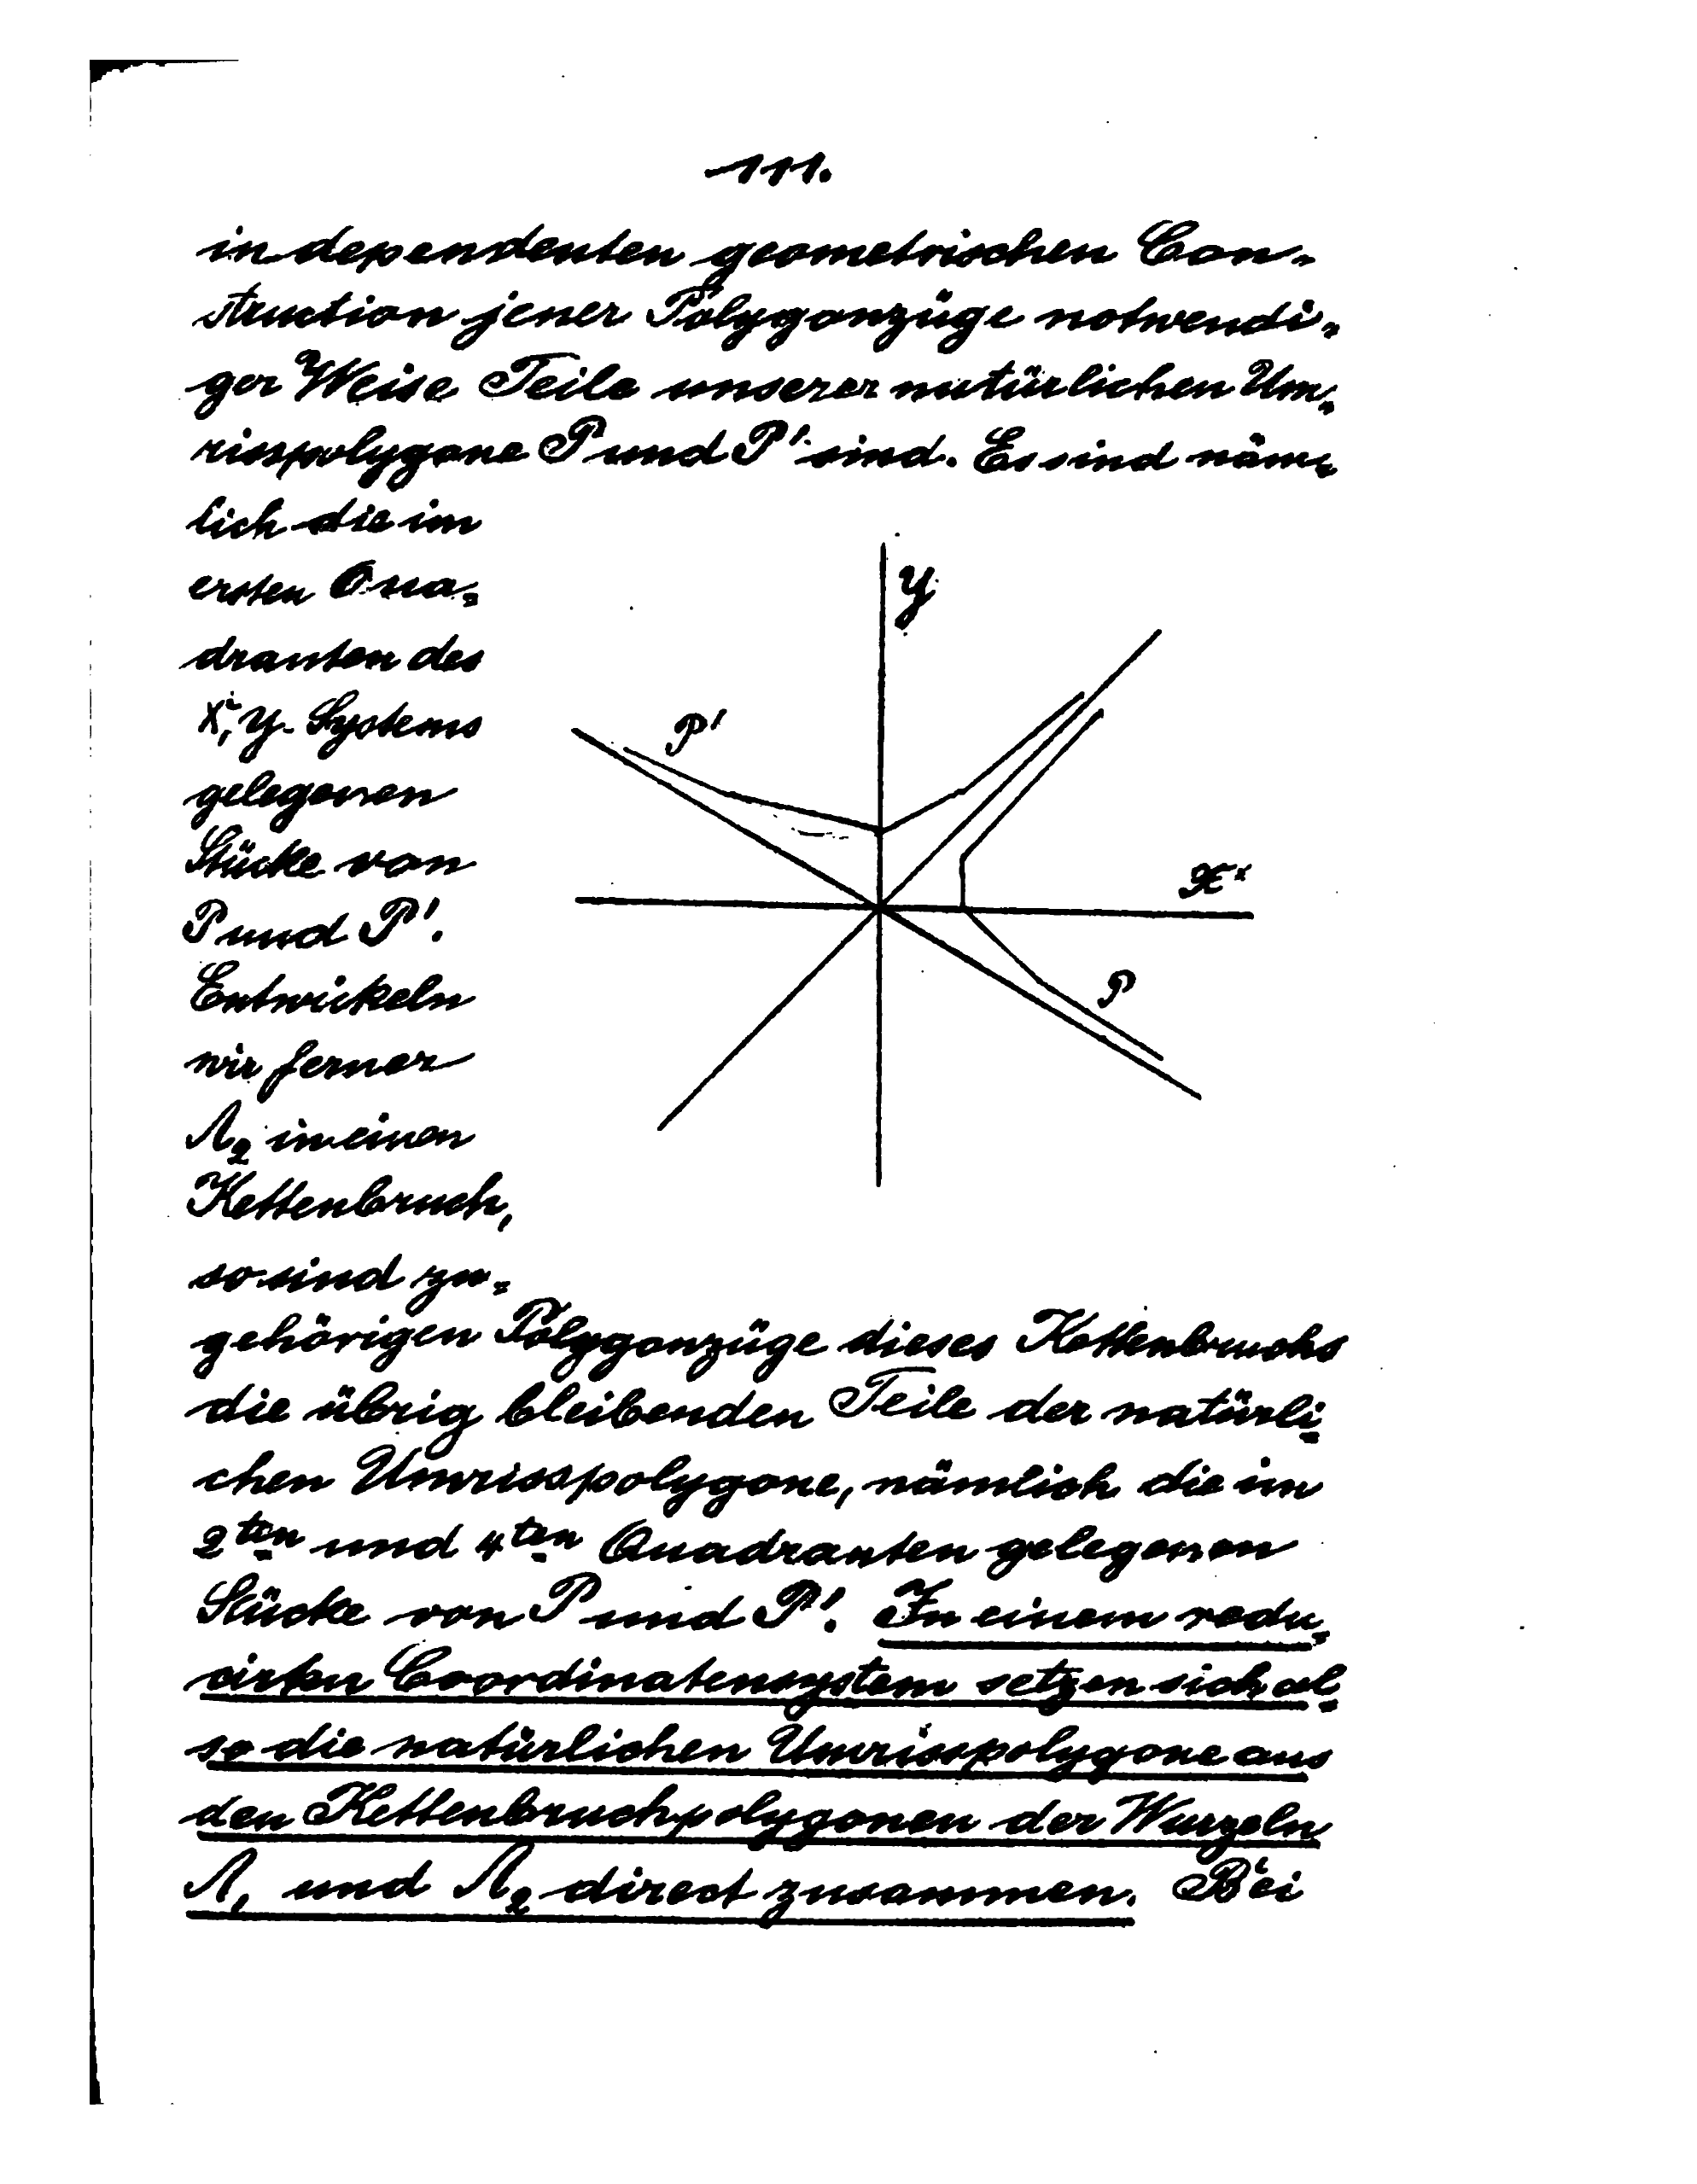 111.
independenten geometrischen Con-
struction jener Polygonzüge notwendi-
ger Weise Teile unserer natürlichen Um-
risspolygone P und P' sind. Es sind näm-
lich die im
ersten Qua-
dranten des
X, Y-Systems
gelegenen
Stücke von
P und P'.
Entwickeln
wir ferner
Λ₂ in einen
Kettenbruch,
so sind zu-
Y
P'
X
P
gehörigen Polygonzüge dieses Kettenbruchs
die übrig bleibenden Teile der natürli-
chen Umrisspolygone, nämlich die im
2ten und 4ten Quadranten gelegenen
Stücke von P und P'. In einem redu-
cirten Coordinatensystem setzen sich al-
so die natürlichen Umrisspolygone aus
den Kettenbruchpolygonen der Wurzeln
Λ₁ und Λ₂ direct zusammen. Bei